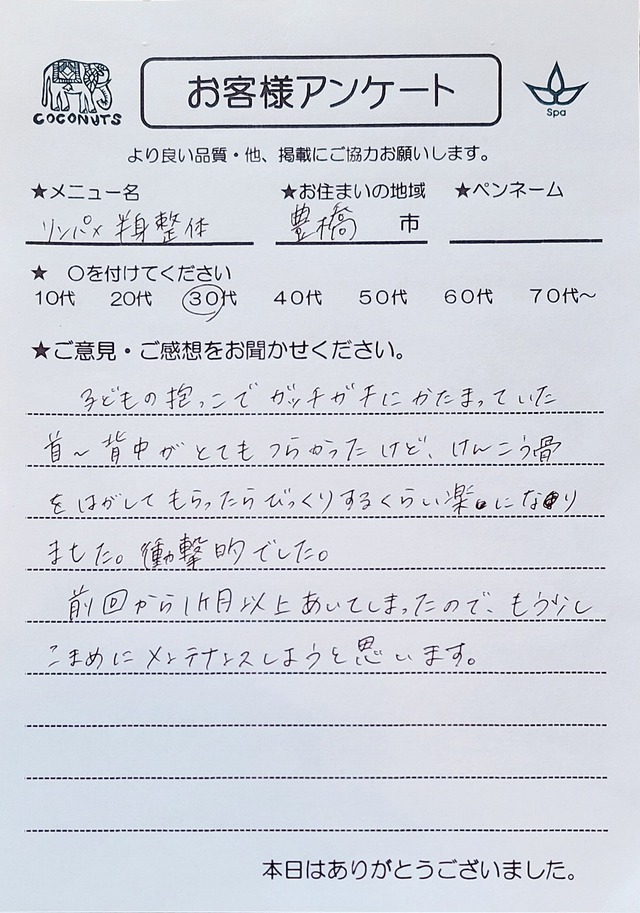 COCONUTS
お客様アンケート
Spa
より良い品質・他、掲載にご協力お願いします。
★メニュー名 ★お住まいの地域 ★ペンネーム
リンパ×半身整体 豊橋 市
★ 〇を付けてください
10代 20代 30代 40代 50代 60代 70代～
★ご意見・ご感想をお聞かせください。
子どもの抱っこでガッチガチにかたまっていた
首～背中がとてもつらかったけど、けんこう骨
をはがしてもらったらびっくりするくらい楽になり
ました。衝撃的でした。
前回から1ヶ月以上あいてしまったので、もう少し
こまめにメンテナンスしようと思います。
本日はありがとうございました。